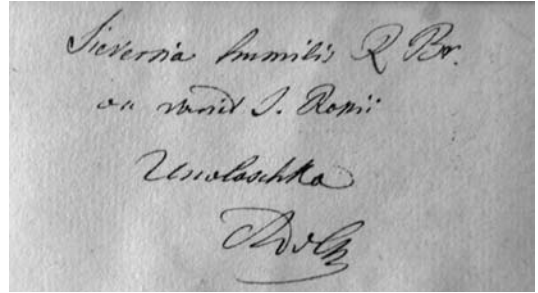 Sieversia humilis R Br.
an variet S. Rossii
Unolaschka